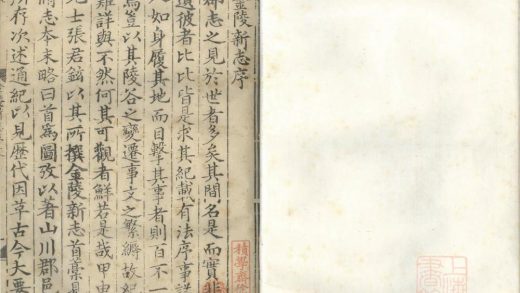 金陵新志序
郡志之見於世者多矣其間名是而實非
遺彼者比比皆是求其紀載有法序事詳
人如身履其地而目擊其事者則百不一
焉豈以其陵谷之變遷事文之繁縟故紀
難詳與不然何其可觀者鮮若是哉甲申
士張君鉉以其所撰金陵新志首藁見
志本末略曰首為圖攷以著山川郡邑
所存次述通紀以見歷代因革古今大要
積學齋徐